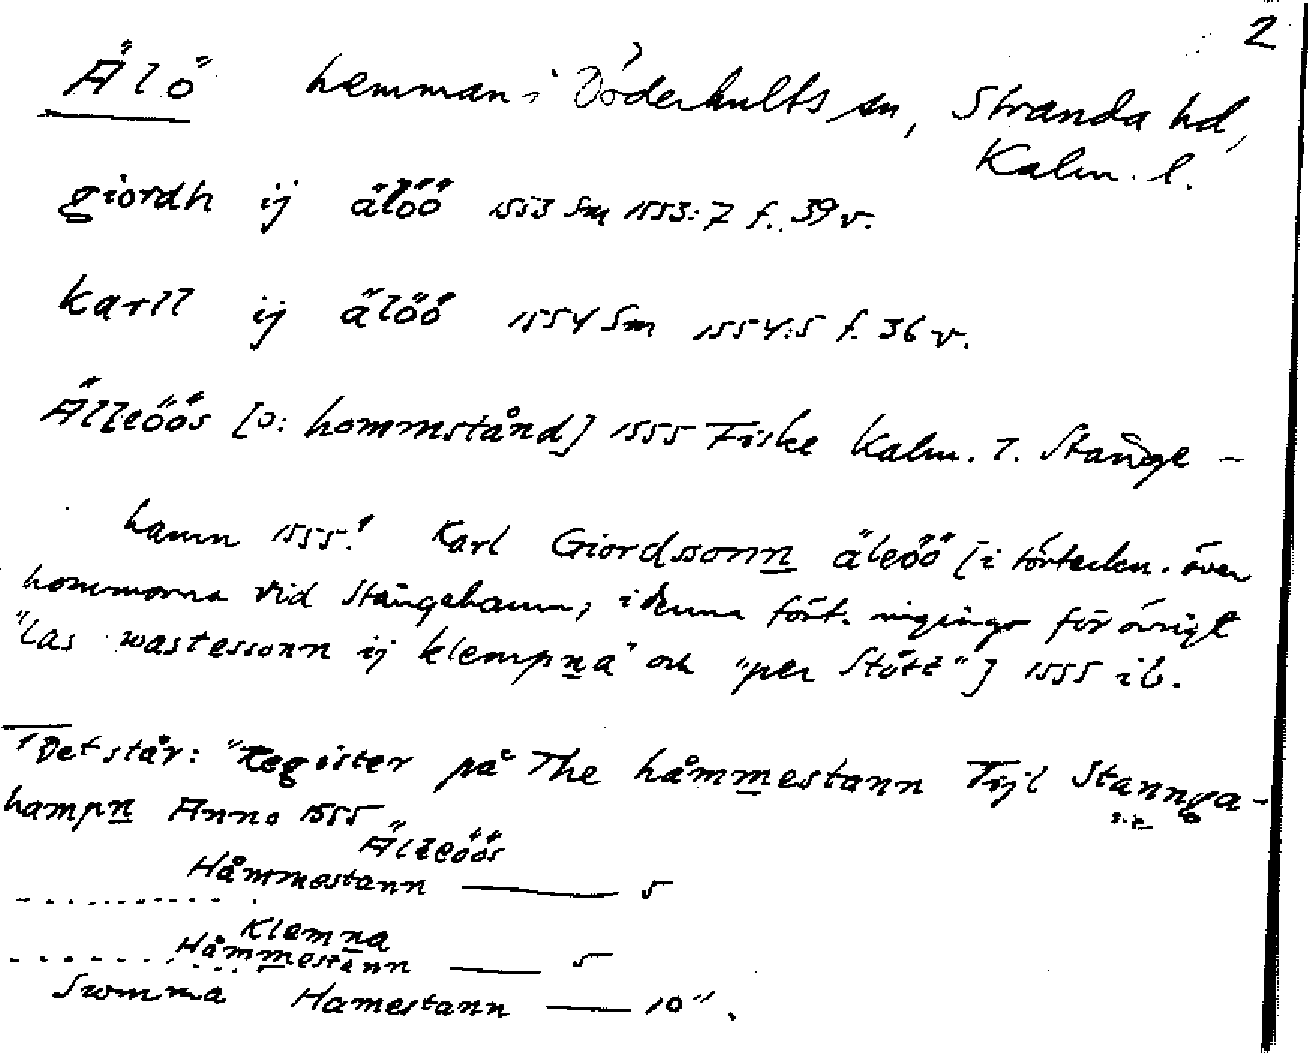 2
Älö hemman i Döderhults sn, Stranda hd,
Kalm. l.
giordh ij älöö 1553 Sm 1553:7 f. 39 v.
karll ij älöö 1554 Sm 1554:5 f. 36 v.
Älleöös [ɔ: hommstånd] 1555 Fiske Kalm. 7. Stånge-
hamn 1555! Karl Giordssonn äleöö [i förteckn. över
hommorna vid Stångehamn, i denna fört. för övrigt
"las wastessonn ij klempna" och "per Stött"] 1555 ib.
Det står: "Register på The håmmestann Tijl Stannga-
hampn Anno 1555
Älleöös
Håmmestann — 5
Klemna
Håmmestann — 5
Summa Hamestann — 10".